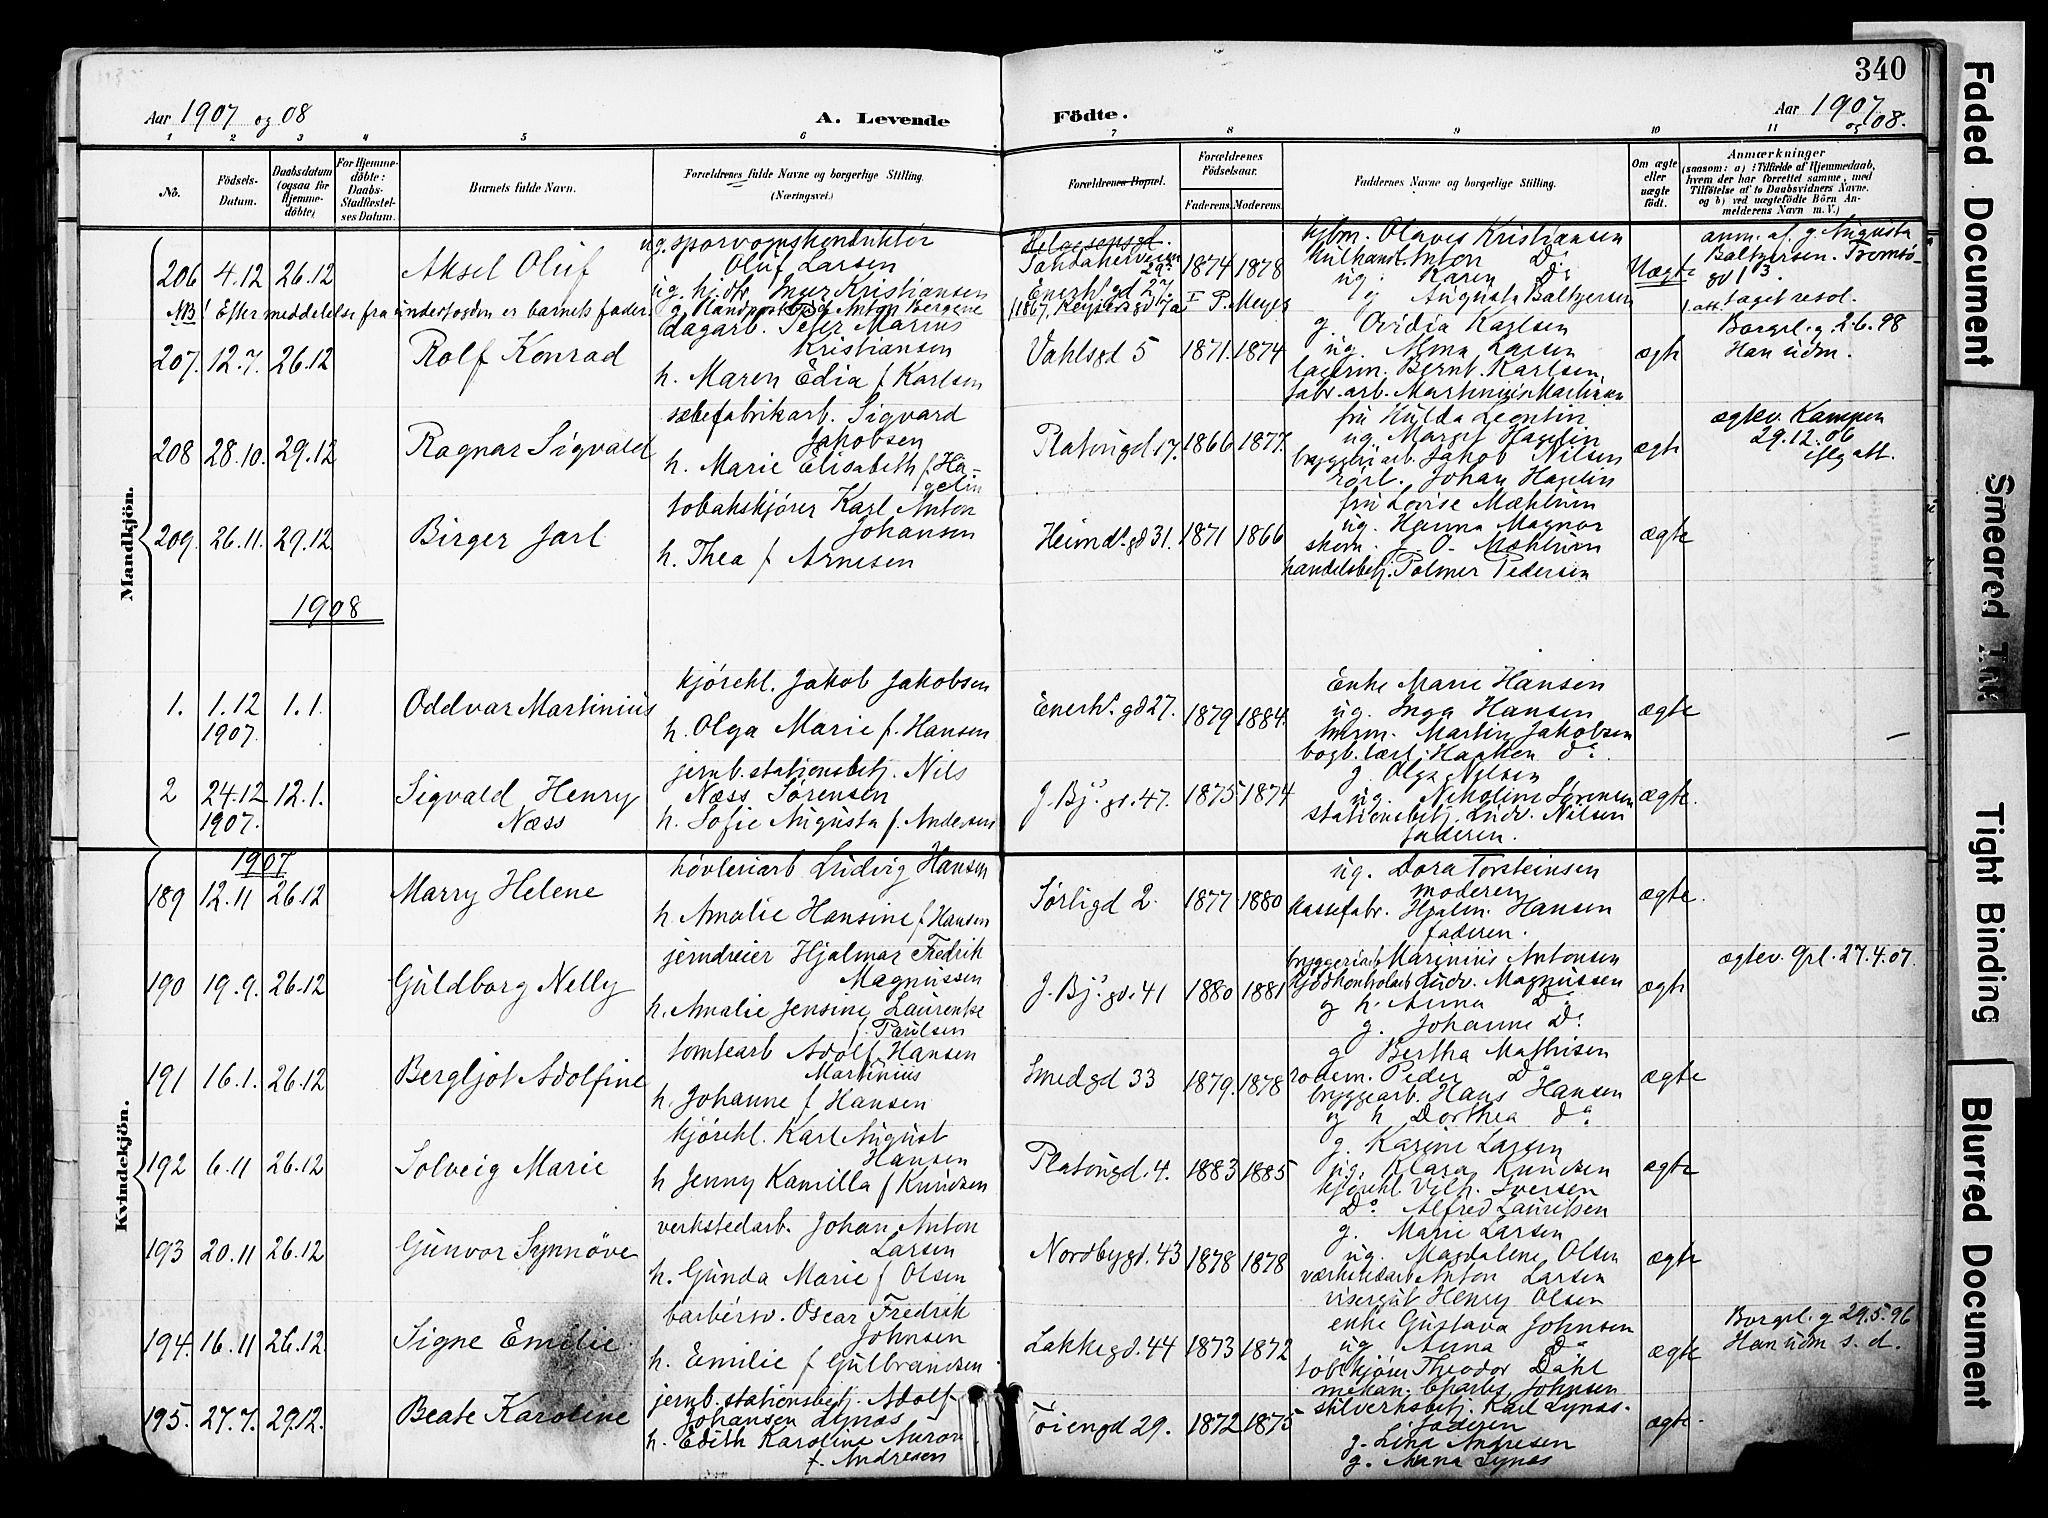 340
Aar 1907 og 08
A. Levende Födte.
Aar 1907 og 08.
1 2 3 4 5 6 7 8 9 10 11
No.
Födsels-Datum.
Daabsdatum (ogsaa for Hjemme-döbte)
For Hjemme-döbte: Daabs-Stadfæstel-ses Datum.
Barnets fulde Navn.
Forældrenes fulde Navne og borgerlige Stilling. (Næringsvei.)
Forældrenes Bopæl.
Forældrenes Födselsaar.
Faderens. Moderens.
Faddernes Navne og borgerlige Stilling.
Om ægte eller uægte födt.
Anmærkninger
(saasom: a) i Tilfælde af Hjemmedaab,
hvem der har forrettet samme, med
Tilföielse af to Daabsvidners Navne.
og b) ved uægtefödte Börn An-
melderens Navn m. V.)
Mandkjön.
206 4.12 26.12 Aksel Oluf
ug. sporvognskonduktör
Oluf Larsen
ug. hj. dtr. Inger Kristiansen
Helgesensgd.
1874 1878
Olaves Kristiansen
Anton Do
ug. Karen Do
g Augusta Baltzersen
Uægte
anm. af. g. Augusta
Baltzersen. Tromsö-
gd 13.
NB! Efter meddelelse fra underfogden er barnets fader
207. 12.7. 26.12 Rolf Konrad
dagarb. Peter Marius
Kristiansen
h. Maren Edia f. Karlsen
Vahlsgd 5 1871. 1874
g. Ovidia Karlsen
ug. Alma Larsen
lagerm. Bernt Karlsen
fabr. arb. Martinius Martinsen
ægte
Borgrl. g 2.6.98
Han udm.
208 28.10. 29.12 Ragnar Sigvald
sæbefabrikarb. Sigvard
Jakobsen
h. Marie Elisabeth f. Ha-
gelin
Platougd 17. 1866 1877.
fru Hulda Legntin
ug. Margit Hagelin
bryggeriarb. Jakob Nilsen
Johan Hagelin
ægte
ægtev. Kampen
29.12.06
iflg att.
209. 26.11. 29.12 Birger Jarl
tobakskjører Karl Anton
Johansen
h. Thea f Arnesen
Heimd.gd 31. 1871 1866
fru Lovise Mæhlum
ug. Hanna Magnor
skom. J. O. Mæhlum
handelsbetj. Palmer Pedersen
ægte
1908
1. 1.12 1907. 1.1. Oddvar Martinius
kjørekl. Jakob Jakobsen
h. Olga Marie f. Hansen
Enerh.gd 27. 1879 1884.
Enke Marie Hansen
ug. Inga Hansen
Martin Jakobsen
bogb.lærl. Haaken do.
ægte
2 24.12 1907. 12.1. Sigvald Henry
Næss
jernb.stationsbetj. Nils
Næss Sørensen
h. Sofie Augusta f. Andersen
J. Bj. gd. 47. 1875 1874
g. Olga Nilsen
ug. Nikoline Sørensen
stationsbetj. Ludv. Nilsen
faderen.
ægte.
Kvindekjön.
1907
189 12.11 26.12 Marry Helene
høvleriarb Ludvig Hansen
h Amalie Hansine f Hansen
Sørligd 2. 1877 1880
ug. Dora Torsteinsen
moderen
kassefabr. Hjalm. Hansen
faderen.
ægte.
190 19.9. 26.12 Guldborg Nelly
jerndreier Hjalmar Fredrik
Magnussen
h. Amalie Jensine Laurentze
f. Paulsen
J. Bj. gd. 41 1880 1881
bryggeriarb Marinius Antonsen
Kjödkontrolarb Ludv. Magnussen
g h. Anna Do
g. Johanne Do
ægte
ægtev. Grl. 27.4.07.
191 16.1. 26.12 Bergljot Adolfine
tomtearb Adolf Hansen
Martinius
h. Johanne f Hansen
Smedgd 33 1879. 1878
g Bertha Mathisen
rodem. Peder Do
bryggearb. Hans Hansen
g h Dorthea do
ægte
192 6.11 26.12 Solveig Marie
kjørekl. Karl August
Hansen
h Jenny Kamilla f Knudsen
Platougd. 4. 1883 1885
g. Karine Larsen
ug. Klara Knudsen
kjørekl Vilh. Iversen
Do Alfred Lauritsen
ægte
193 20.11 26.12 Gunvor Synnöve
verkstedarb. Johan Anton
Larsen
h. Gunda Marie f Olsen
Nordbygd. 43 1878 1878
g. Marie Larsen
ug. Magdalene Olsen
værkstedarb Anton Larsen
visergut Henry Olsen
ægte
194. 16.11 26.12. Signe Emilie
barbérsv. Oscar Fredrik
Johnsen
h. Emilie f Gulbrandsen
Lakkegd. 44 1873 1872
enke Gustava Johnsen
ug Anna Do
tobkjører Theodor Dahl
mekan. Charles Johnsen
ægte
Borgrl. g 29.5.96
Han udm s. d.
195. 27.7. 29.12. Beate Karoline
jernb.stationsbetj. Adolf
Johansen Lynæs
h. Edith Karoline Auror
f. Andresen
Töiengd 29. 1872 1875
Karl Lynæs.
faderen
g. Lina Andresen
g. Anna Lynæs
ægte.
Faded Document
Smeared Ink
Tight Binding
Blurred Document